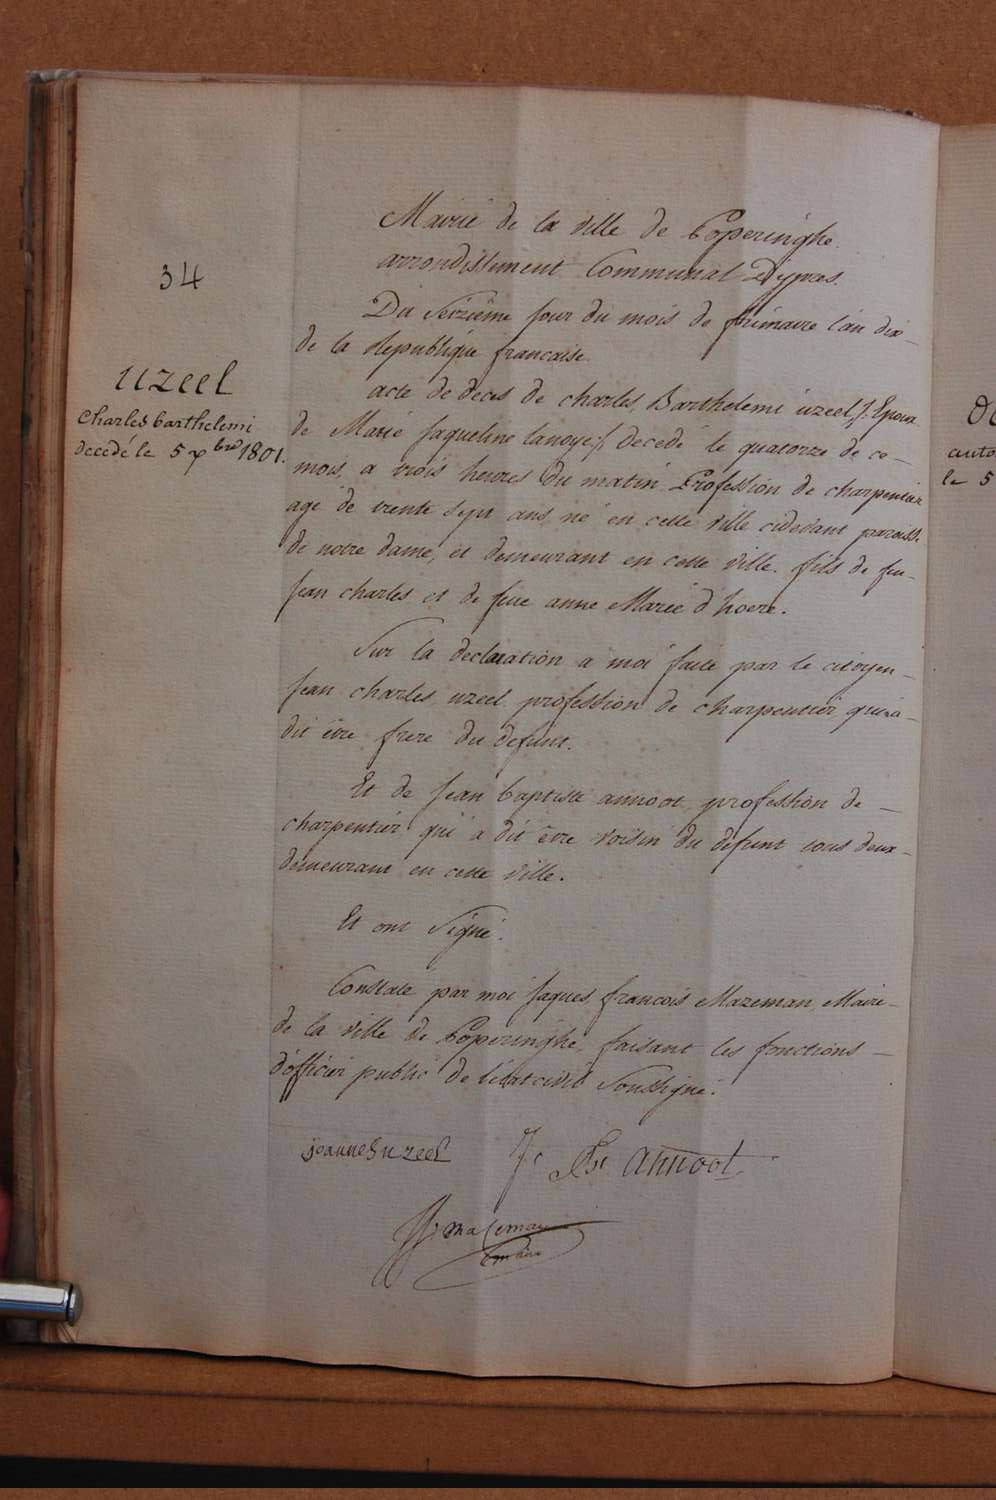 34
Uzeel
Charles barthelemi
decedé le 5 xbre 1801.
Mairie de la ville de Poperinghe
arrondissement Communal D'ypres.
Du Seizième jour du mois de frimaire l'an dix
de la republique francaise
acte de deces de charles Barthelemi uzeel, Epoux
de Marie Jaqueline lanoye decedé le quatorze de ce
mois, a trois heures du matin Profession de charpentier
agé de trente sept ans, né en cette ville cidevant paroisse
de notre dame, et demeurant en cette ville. fils de feu
Jean charles et de feue anne Marie d'hoere.
Sur la declaration a moi faite par le citoyen
Jean charles uzeel profession de charpentier qui a
dit être frere du defunt.
Et de Jean baptiste annoot profession de
charpentier qui a dit être voisin du defunt tous deux
demeurant en cette ville.
Et ont Signé.
Constate par moi Jaques francois Mazeman, Maire
de la ville de Poperinghe, faisant les fonctions
d'officier public de l'état civil Soussigné.
joannes uzeel
annoot
mazeman
maire
auto
le 5